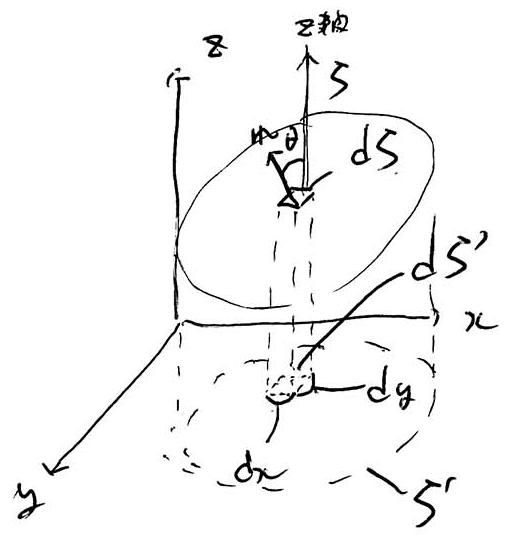 z
z軸
S
n
θ
dS
dS'
x
dy
dx
S'
y